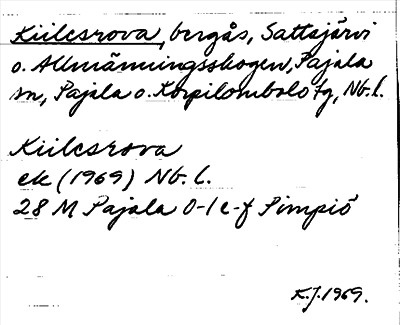 Kiilesrova, bergås, Sattajärvi
o. Allmänningsskogen, Pajala
sn, Pajala o. Korpilombolo tg, Nb. l.
Kiilesrova
ek (1969) Nb. l.
28 M Pajala 0-1 e-f Pimpiö
K.J. 1969.